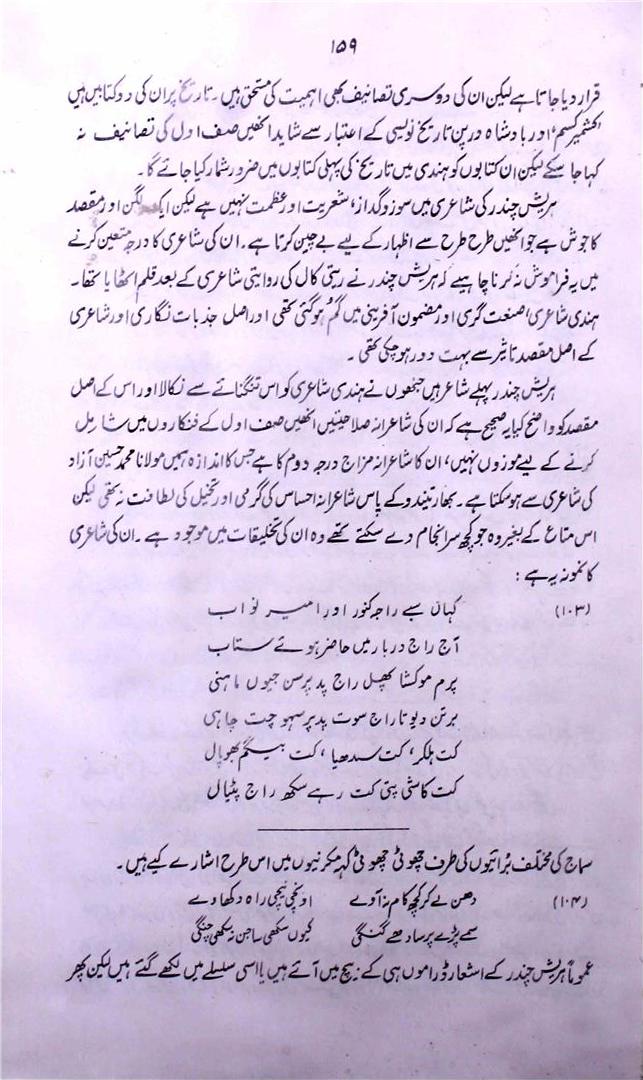 ۱۵۹
قرار دیا جاتا ہے لیکن ان کی دوسری تصانیف بھی اہمیت کی مستحق ہیں۔ تاریخ پر ان کی دو کتابیں ہیں
'کشمیر کسم' اور بادشاہ درپن تاریخ نویسی کے اعتبار سے شاید انھیں صف اول کی تصانیف نہ
کہا جا سکے لیکن ان کتابوں کو ہندی میں تاریخ کی پہلی کتابوں میں ضرور شمار کیا جائے گا۔
ہریش چندر کی شاعری میں سوز و گداز، شعریت اور عظمت نہیں ہے لیکن ایک لگن اور مقصد
کا جوش ہے جو انھیں طرح طرح سے اظہار کے لیے بے چین کرتا ہے۔ ان کی شاعری کا درجہ متعین کرنے
میں یہ فراموش نہ کرنا چاہیے کہ ہریش چندر نے ریتی کال کی روایتی شاعری کے بعد قلم اٹھایا تھا۔
ہندی شاعری، صنعت گری اور مضمون آفرینی میں گم ہو گئی تھی اور اصل جذبات نگاری اور شاعری
کے اصل مقصد تاثر سے بہت دور ہو چکی تھی۔
ہریش چندر پہلے شاعر ہیں جنھوں نے ہندی شاعری کو اس تنگنائے سے نکالا اور اس کے اصل
مقصد کو واضح کیا یہ صحیح ہے کہ ان کی شاعرانہ صلاحیتیں انھیں صف اول کے فنکاروں میں شامل
کرنے کے لیے موزوں نہیں، ان کا شاعرانہ مزاج درجہ دوم کا ہے جس کا اندازہ ہمیں مولانا محمد حسین آزاد
کی شاعری سے ہو سکتا ہے۔ بھارتیندو کے پاس شاعرانہ احساس کی گرمی اور تخیل کی لطافت نہ تھی لیکن
اس متاع کے بغیر وہ جو کچھ سرانجام دے سکتے تھے وہ ان کی تخلیقات میں موجود ہے۔ ان کی شاعری
کا نمونہ یہ ہے :
(۱۰۳) کہاں سے راجہ کنور اور امیر نواب
آج راج دربار میں حاضر ہوئے ستاب
پرم موکشا پھل راج پد پرسن جیوں ماہنی
برتن دیوتا راج سوت پد پر سہو چت چاہی
کت ہلکر، کت سدھیا، کت بیگم بھوپال
کت کاشی پتی کت رہے سکھ راج پٹیال
سماج کی مختلف برائیوں کی طرف چھوٹی چھوٹی کہہ مکرنیوں میں اس طرح اشارے کیے ہیں۔
(۱۰۴) دھن لے کر کچھ کام نہ آوے اونچی نیچی راہ دکھاوے
سمے پڑے پر سادھے گنگی کیوں سکھی ساجن نہ سکھی چنگی
عموماً ہریش چندر کے اشعار ڈراموں ہی کے بیچ میں آئے ہیں یا اسی سلسلے میں لکھے گئے ہیں لیکن پھر